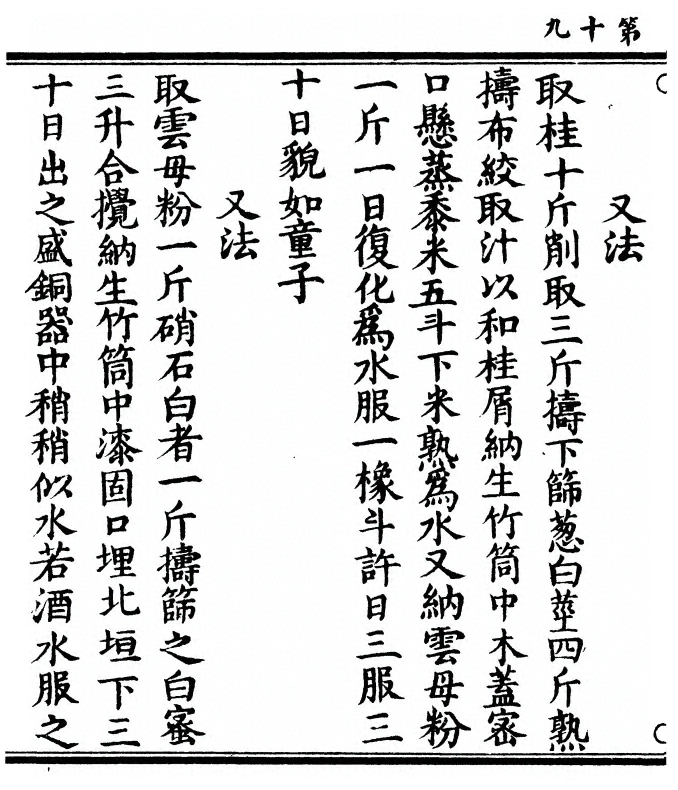 第十九
又法
取桂十斤削取三斤擣下篩葱白莖四斤熟
擣布絞取汁以和桂屑納生竹筒中木蓋密
口懸蒸黍米五斗下米熟爲水又納雲母粉
一斤一日復化爲水服一橡斗許日三服三
十日貌如童子
又法
取雲母粉一斤硝石白者一斤擣篩之白蜜
三升合攪納生竹筒中漆固口埋北垣下三
十日出之盛銅器中稍稍似水若酒水服之